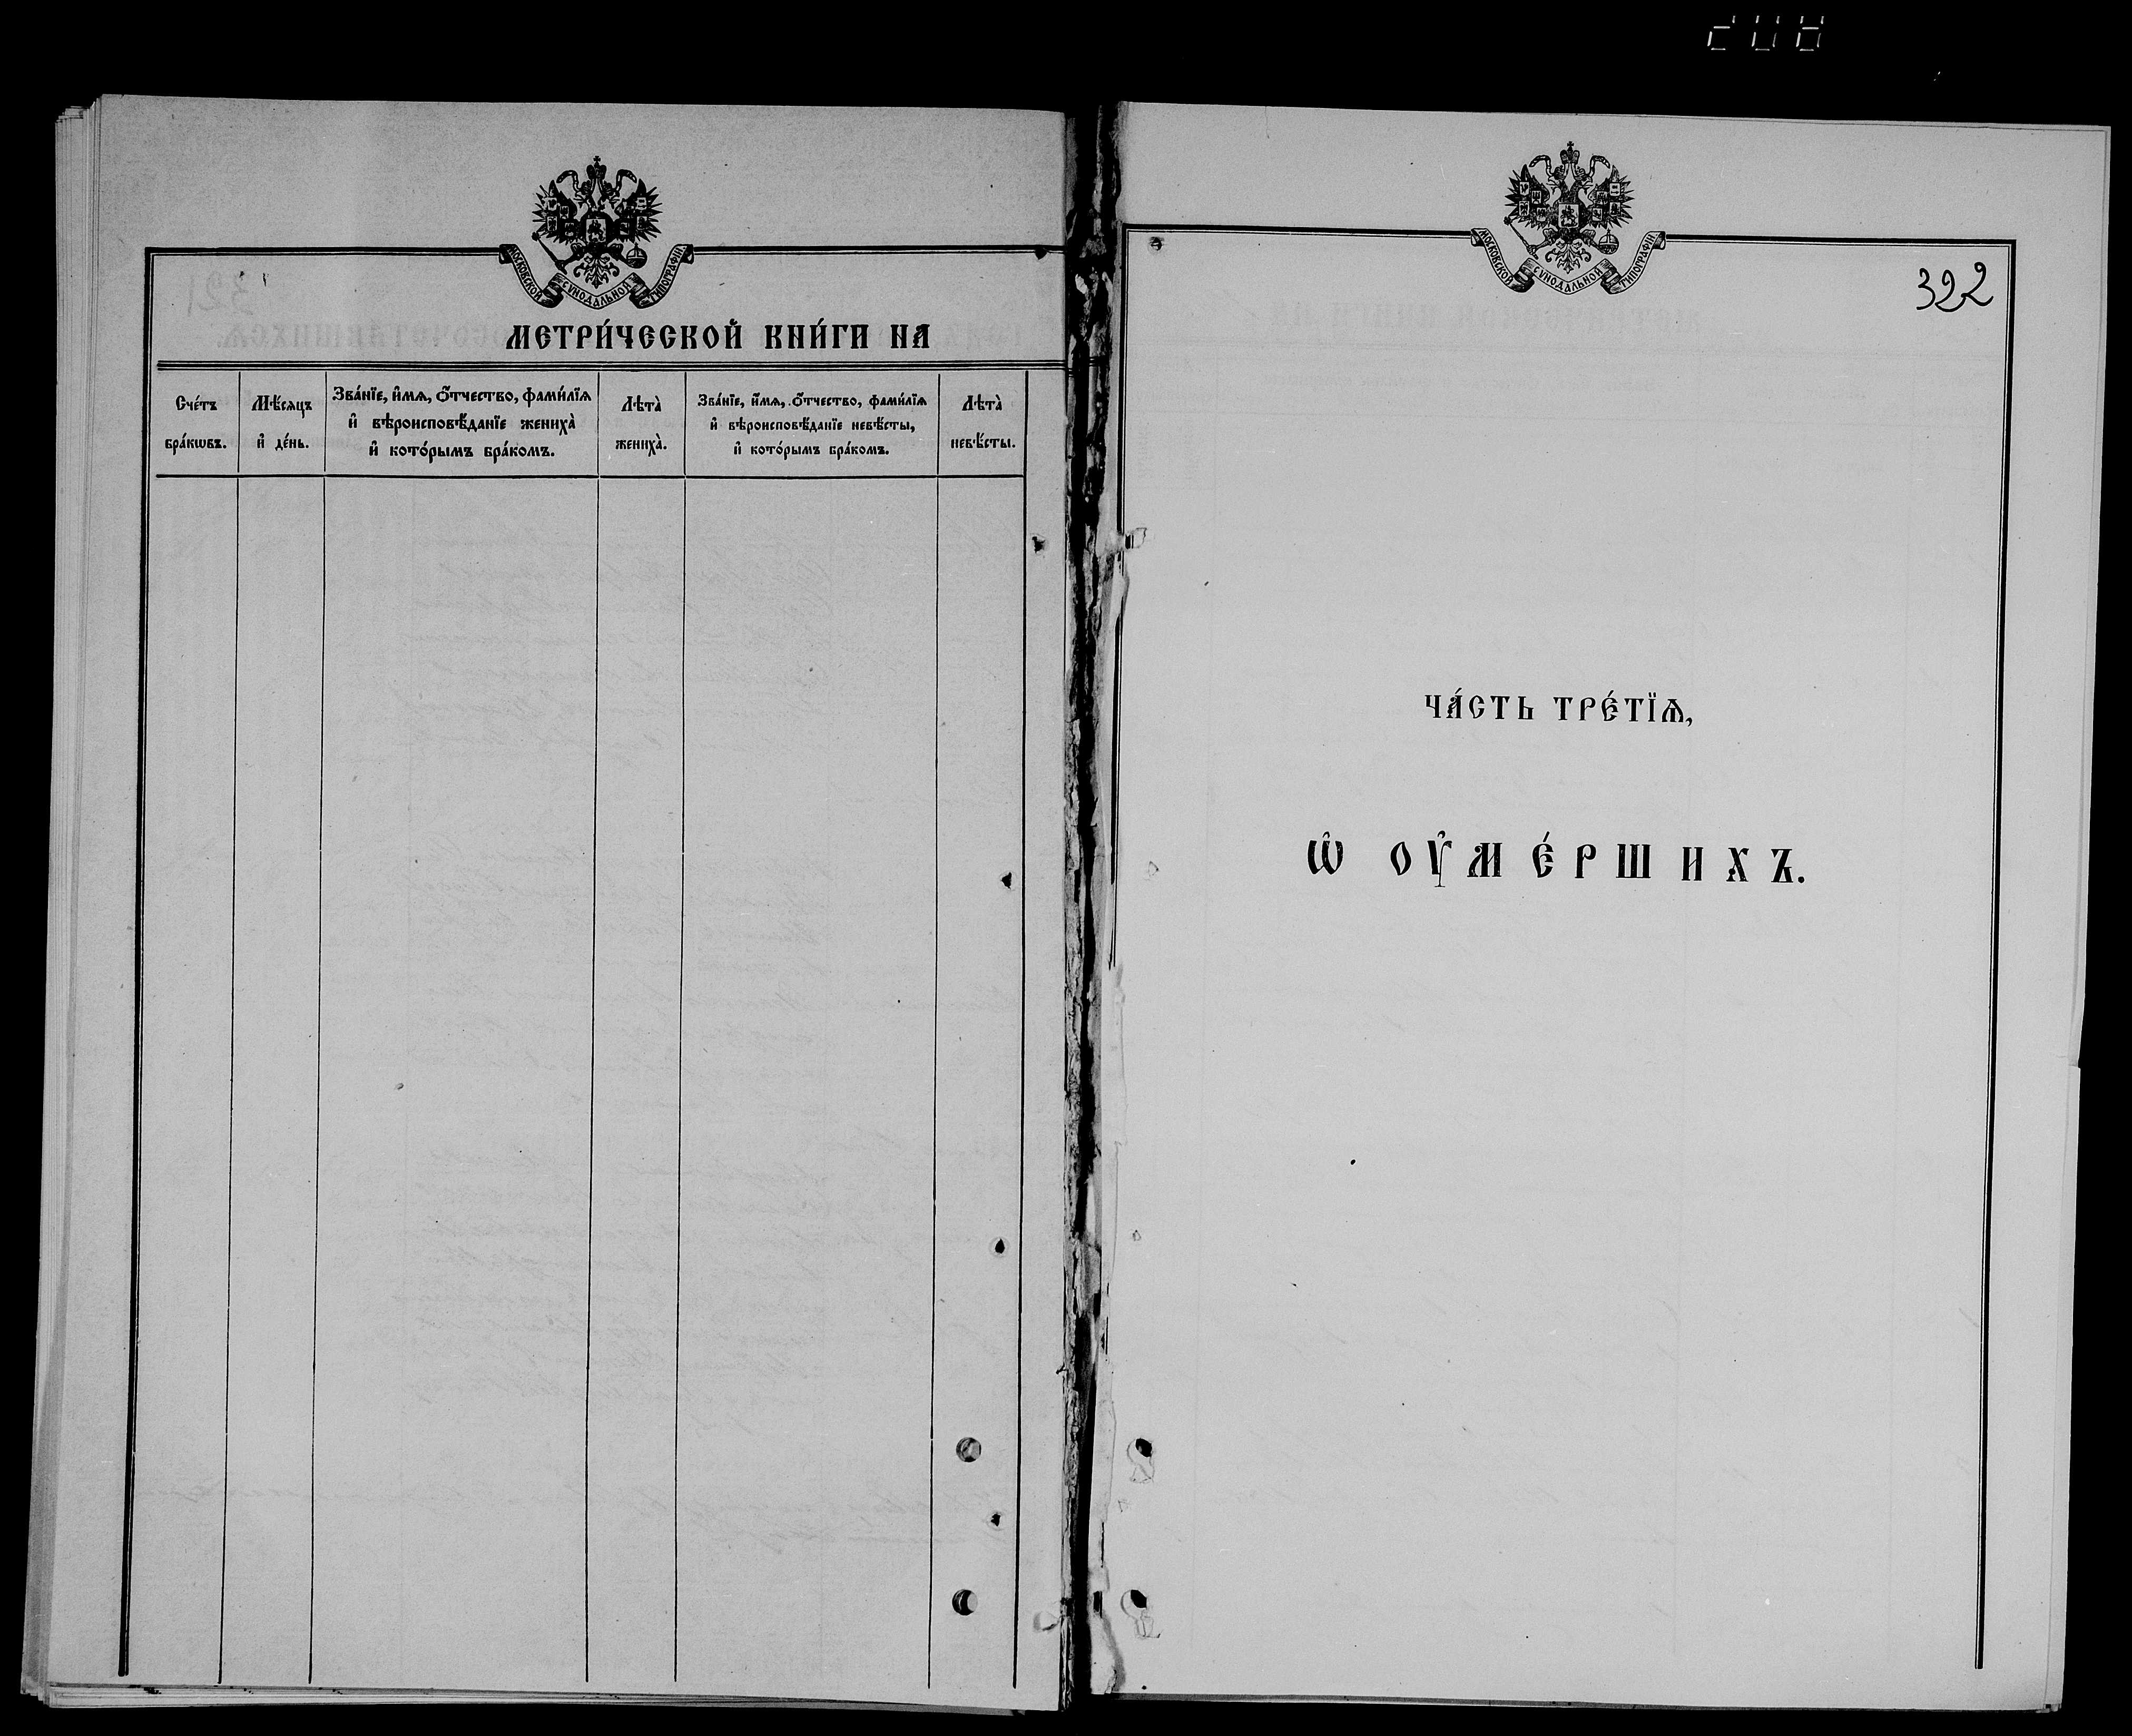 208
МОСКОВСКОЙ СѴНОДАЛЬНОЙ ТИПОГРАФІИ
МЕТРИ́ЧЕСКОЙ КНИ́ГИ НА
Сче́тъ бра́кѡвъ.
Мѣ́сяцъ и҆ де́нь.
Зва́нїе, и҆́мѧ, ѻ҆́тчество, фами́лїѧ
и҆ вѣроисповѣ́данїе жениха̀
и҆ кото́рымъ бра́комъ.
Лѣта̀ жениха̀.
Зва́нїе, и҆́мѧ, ѻ҆́тчество, фами́лїѧ
и҆ вѣроисповѣ́данїе невѣ́сты,
и҆ кото́рымъ бра́комъ.
Лѣта̀ невѣ́сты.
МОСКОВСКОЙ СѴНОДАЛЬНОЙ ТИПОГРАФІИ
322
ЧА́СТЬ ТРЕ́ТЇѦ,
Ѡ҆ ОУ҆МЕ́РШИХЪ.